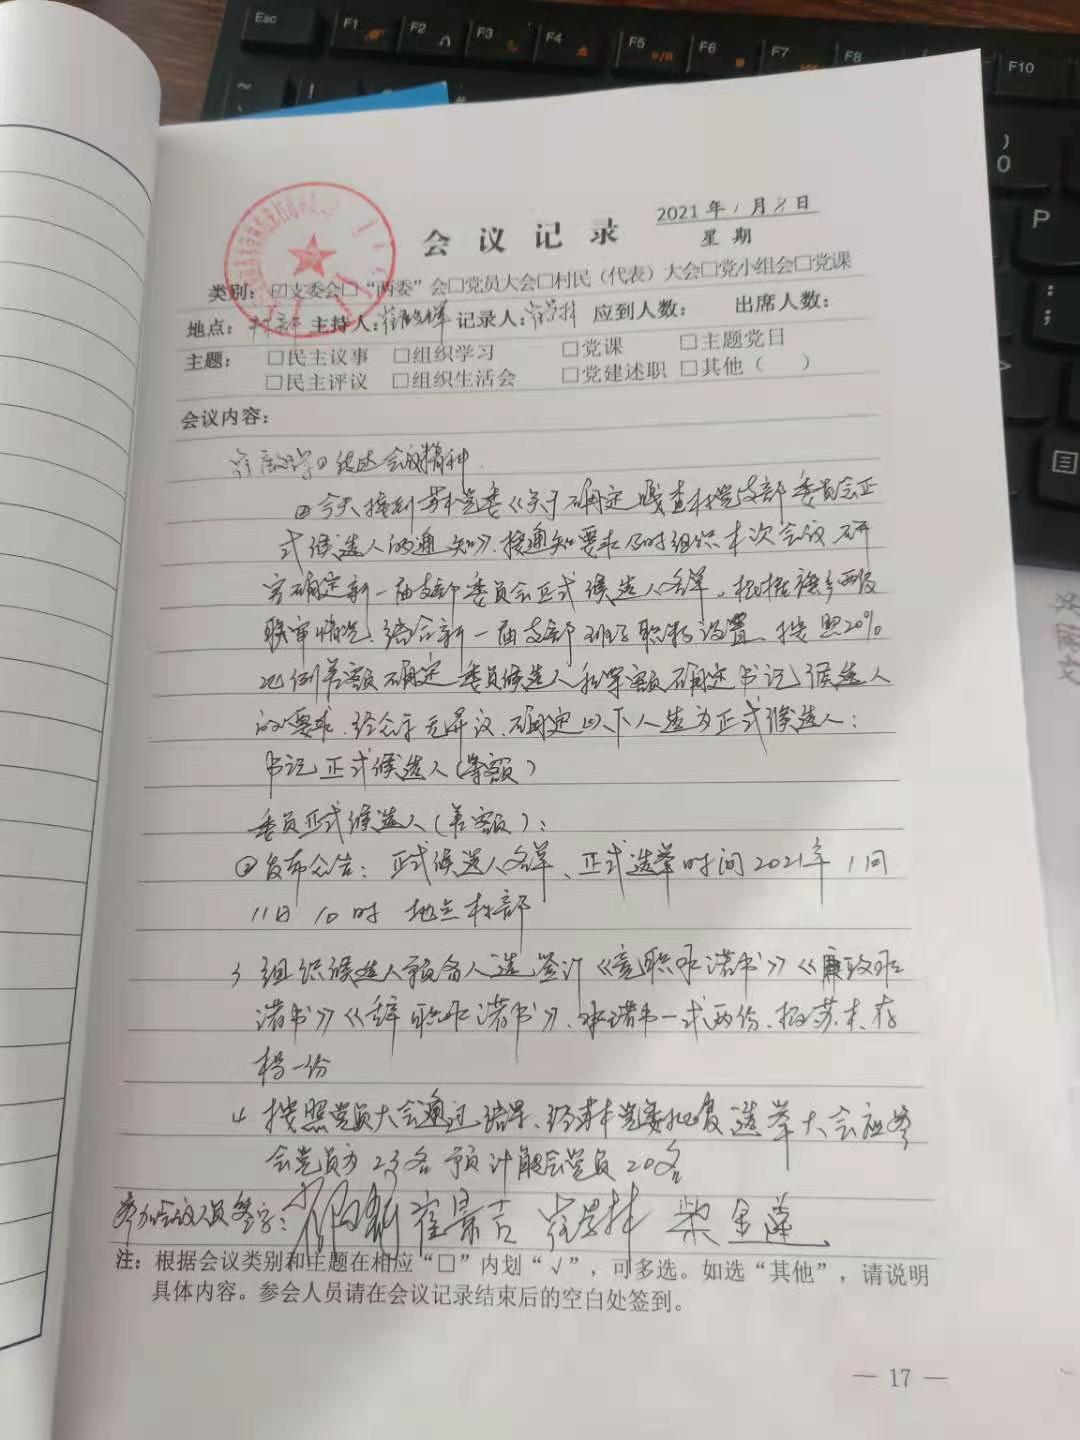 Esc F1 F2 F3 F4 F5 F6 F7 F8 F10
P
会议记录
2021年1月8日
星期
类别：☑支委会□“两委”会□党员大会□村民（代表）大会□党小组会□党课
地点：村部 主持人： 记录人： 应到人数： 出席人数：
主题： □民主议事 □组织学习 □党课 □主题党日
□民主评议 □组织生活会 □党建述职 □其他（ ）
会议内容：
传达会议精神.
今天接到苏木党委《关于确定嘎查村党支部委员会正
式候选人的通知》，按通知要求及时组织本次会议研
究确定新一届支部委员会正式候选人名单。根据旗乡两级
联审情况，结合新一届支部班子职数设置，按照20%
比例差额确定委员候选人和等额确定书记候选人
的要求，经会议无异议，确定以下人选为正式候选人：
书记正式候选人（等额）
委员正式候选人（差额）：
②发布公告：正式候选人名单、正式选举时间2021年1月
11日10时 地点村部
3 组织候选人预备人选签订《竞职承诺书》《廉政承
诺书》《辞职承诺书》，承诺书一式两份，报苏木存
档一份
4 按照党员大会通过结果、经苏木党委批复选举大会应参
会党员为23名 预计能参会党员20名
参加会议人员签字： 崔景吉 柴金莲
注：根据会议类别和主题在相应“□”内划“√”，可多选。如选“其他”，请说明
具体内容。参会人员请在会议记录结束后的空白处签到。
— 17 —